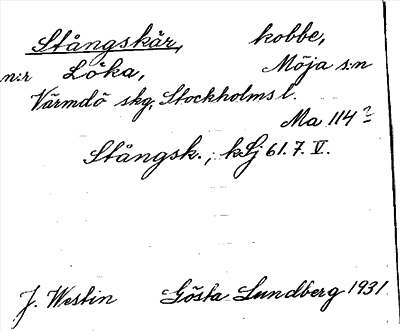 Stångskär, kobbe,
n:r Löka, Möja s:n
Värmdö skg, Stockholms l.
Ma 114
Stångsk., kSj 61.7. V.
J. Westin Gösta Lundberg 1931